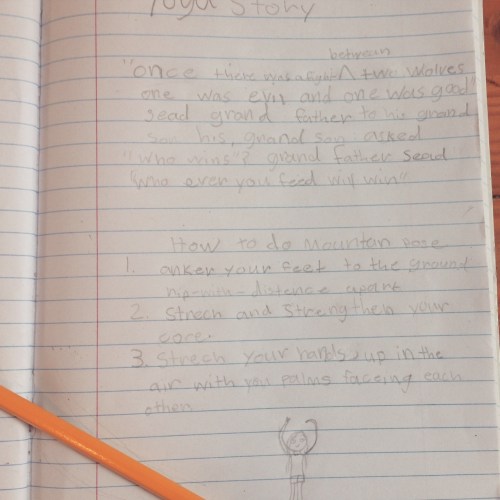 Yoga Story
betwean
"once there was a fight ^ two wolves
one was evil and one was good"
sead grand father to his grand
son his, grand son asked
"who wins"? grand father sead
"who ever you feed will win"
How to do mountan pose
1. anker your feet to the ground
hip-with-distence apart
2. Strech and strengthen your
core.
3. Strech your hands up in the
air with you palms faceing each
other